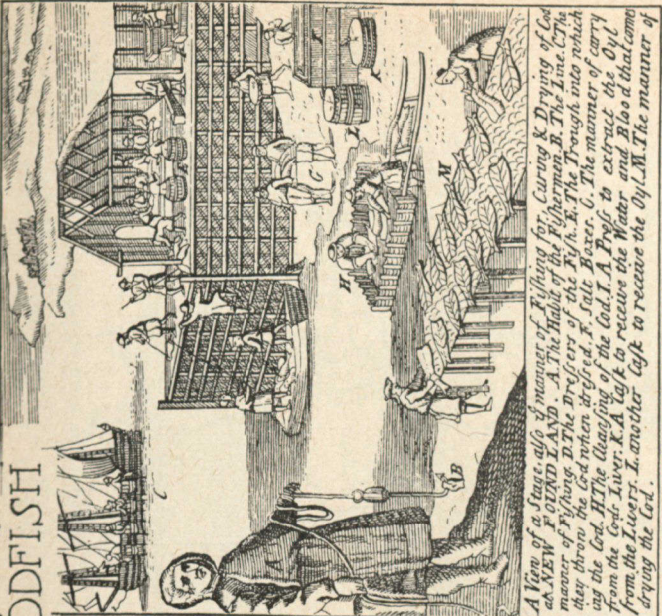 ODFISH
A
B
C
G
H
I
L
M
A View of a Stage, also ye manner of Fishing for, Curing & Drying of Cod
at NEW FOUND LAND. A. The Habit of the Fishermen. B. The Line. C. The
manner of Fishing. D. The Dressers of the Fish. E. The Trough into which
they throw the Cod when dressed. F. Salt Boxes. G. The manner of carry
ing the Cod. H. The Cleansing of the Cod. I. A Press to extract the Oyl
from the Cods Livers. K. A Cask to receive the Water and Blood that comes
from the Livers. L. another Cask to receive the Oyl. M. The manner of
drying the Cod.